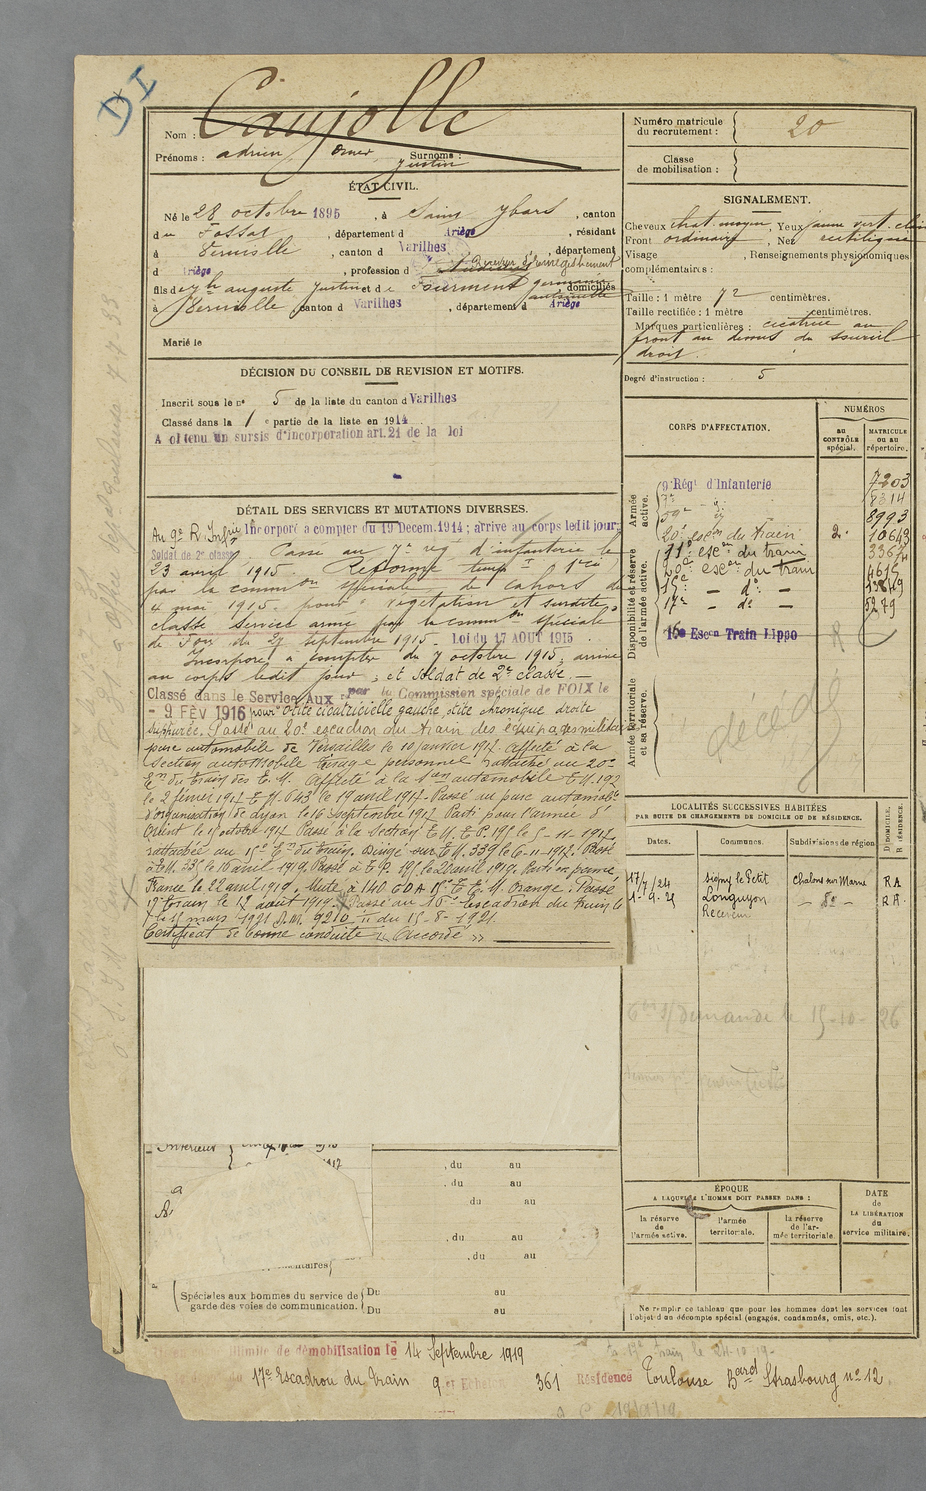 DI
Nom : Caujolle
Prénoms : adrien Omer Justin Surnoms :
Numéro matricule du recrutement : 20
Classe de mobilisation :
ÉTAT CIVIL.
Né le 28 octobre 1895, à Saint Ybars, canton
du Fossat, département d Ariège, résidant
à Verniolle, canton d Varilhes, département
d Ariège, profession d Receveur d'enregistrement
fils de auguste Justin et de Fourment domiciliés
à Verniolle canton d Varilhes, département d Ariège
Marié le
SIGNALEMENT.
Cheveux chat. moyen, Yeux jaune vert clair
Front ordinaire, Nez rectiligne
Visage , Renseignements physionomiques
complémentaires :
Taille : 1 mètre 72 centimètres.
Taille rectifiée : 1 mètre centimètres.
Marques particulières : cicatrice au
front au dessus du sourcil
droit.
Degré d'instruction : 5
DÉCISION DU CONSEIL DE REVISION ET MOTIFS.
Inscrit sous le n° 5 de la liste du canton d Varilhes
Classé dans la 1e partie de la liste en 1914
A obtenu un sursis d'incorporation art. 21 de la loi
DÉTAIL DES SERVICES ET MUTATIONS DIVERSES.
Au 9e R. Infie Incorporé à compter du 19 Décem. 1914 ; arrivé au corps ledit jour,
Soldat de 2e classe. Passé au 7e rég. d'infanterie le
23 avril 1915. Réformé temp.
par la common spéciale de Cahors du
4 mai 1915 pour végétation et surdité,
classé service armé par la common spéciale
de Foix du 27 septembre 1915. Loi du 17 AOUT 1915
Incorporé à compter du 7 octobre 1915, arrivé
au corps ledit jour, et soldat de 2e classe.
Classé dans le Service Aux re par la Commission spéciale de FOIX le
- 9 FÉV 1916 pour otite cicatricielle gauche, otite chronique droite
suppurée. Passé au 20e escadron du train des équipages militaires
parc automobile de Versailles le 10 janvier 1917. Affecté à la
Section automobile personnel rattaché au 20e
En du train des E. M. Affecté à la son automobile T.M. 192
le 2 février 1917 T.M. 643 le 19 avril 1917 - Passé au parc automobile
d'organisation de Lyon le 16 septembre 1917. Parti pour l'armée d'
Orient le 15 octobre 1917. Passé à la section T.M. T.P. 195 le 5-11-1917
rattachée au 15e En du train. Dirigé sur T.M. 339 le 6-11-1917. Passé
à T.M. 335 le 16 avril 1919. Passé à T.P. 195 le 20 avril 1919. Parti en perme,
France le 22 avril 1919. Muté à 140 C O A Orange. Passé
17e train le 12 août 1919. Passé au 16e escadron du train le
15 mars 1921 D.M. 9210 du 15-8-1921.
Certificat de bonne conduite « Accordé »
CORPS D'AFFECTATION.
NUMÉROS
AU CONTRÔLE spécial.
MATRICULE OU AU répertoire.
Armée active.
9e Régt d'Infanterie 7203
7e d° 8314
59e d° 8993
20e escon du train 2. 10643
Disponibilité et réserve de l'armée active.
20e escon du train
15e - d° -
17e - d° - 5279
16e Escon Train Hippo
Armée territoriale et sa réserve.
décédé
LOCALITÉS SUCCESSIVES HABITÉES
PAR SUITE DE CHANGEMENTS DE DOMICILE OU DE RÉSIDENCE.
Dates. Communes. Subdivisions de région. D DOMICILE. R RÉSIDENCE.
17/4/24 Signy le Petit Chalons sur Marne RA
1-9-25 Longuyon - d° - RA
Receveur
demande le 15-10-26
Intérieur
, du au
, du au
du au
, du au
, du au
Spéciales aux hommes du service de garde des voies de communication. Du au
Du au
ÉPOQUE
A LAQUELLE L'HOMME DOIT PASSER DANS :
la réserve de l'armée active.
l'armée territoriale.
la réserve de l'armée territoriale.
DATE DE LA LIBÉRATION du service militaire.
Ne remplir ce tableau que pour les hommes dont les services font
l'objet d'un décompte spécial (engagés, condamnés, omis, etc.).
illimité de démobilisation le 14 Septembre 1919
17e Escadron du train 9e Echelon 361 Résidence Toulouse Bard Strasbourg n° 12